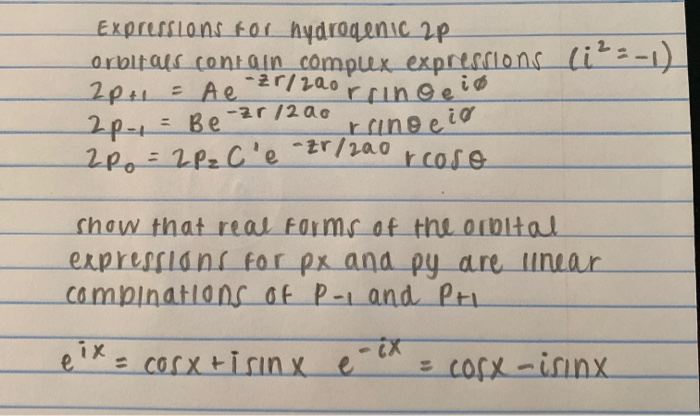 Expressions for hydrogenic 2p
orbitals contain complex expressions (i² = -1)
2p₊₁ = Ae^-zr/2a₀ r sinθe^iø
2p₋₁ = Be^-zr/2a₀ r sinθe^iø
2p₀ = 2p_z C'e^-zr/2a₀ r cosθ
show that real forms of the orbital
expressions for px and py are linear
combinations of P₋₁ and P₊₁
e^ix = cosx + i sinx e^-ix = cosx - i sinx